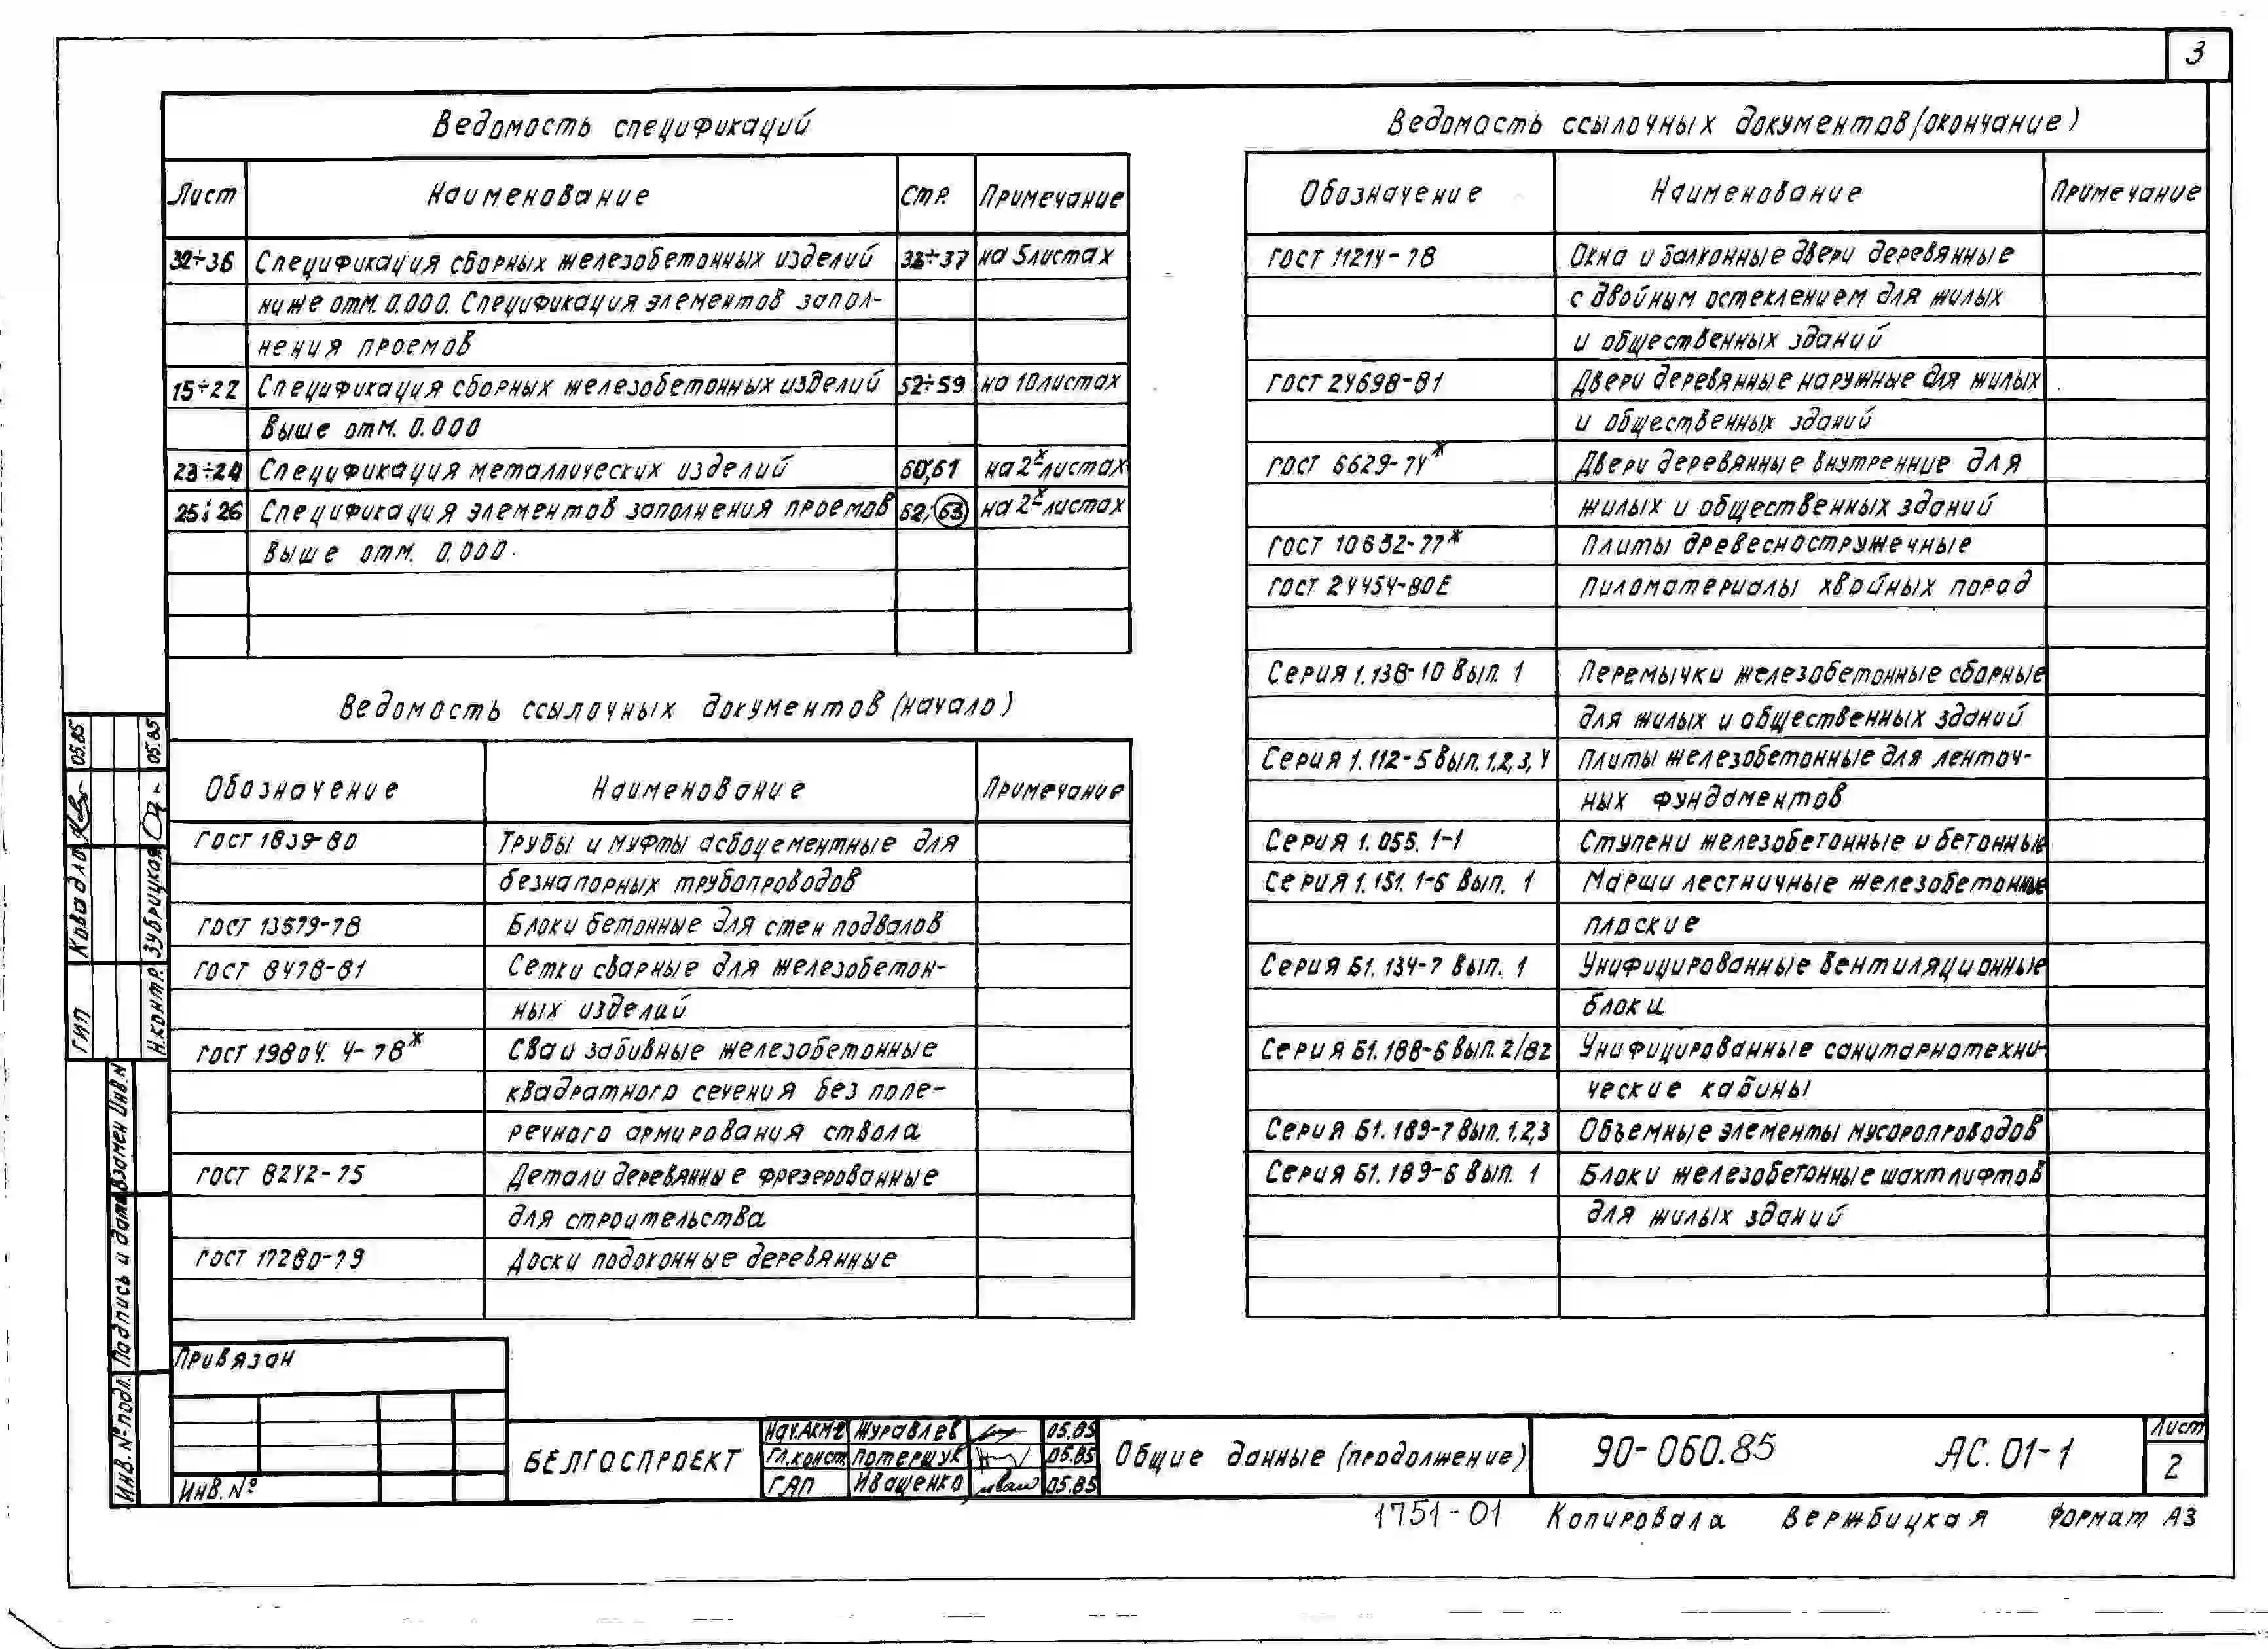 3
Ведомость спецификаций
Лист Наименование Стр. Примечание
32÷36 Спецификация сборных железобетонных изделий 33÷37 на 5 листах
ниже отм. 0.000. Спецификация элементов запол-
нения проемов
15÷22 Спецификация сборных железобетонных изделий 52÷59 на 10 листах
выше отм. 0.000
23÷24 Спецификация металлических изделий 60; 61 на 2х листах
25; 26 Спецификация элементов заполнения проемов 62, 63 на 2х листах
выше отм. 0.000.
Ведомость ссылочных документов (начало)
Обозначение Наименование Примечание
ГОСТ 1839-80 Трубы и муфты асбоцементные для
безнапорных трубопроводов
ГОСТ 13579-78 Блоки бетонные для стен подвалов
ГОСТ 8478-81 Сетки сварные для железобетон-
ных изделий
ГОСТ 19804.4-78* Сваи забивные железобетонные
квадратного сечения без попе-
речного армирования ствола
ГОСТ 8242-75 Детали деревянные фрезерованные
для строительства
ГОСТ 17280-79 Доски подоконные деревянные
Ведомость ссылочных документов (окончание)
Обозначение Наименование Примечание
ГОСТ 11214-78 Окна и балконные двери деревянные
с двойным остеклением для жилых
и общественных зданий
ГОСТ 24698-81 Двери деревянные наружные для жилых
и общественных зданий
ГОСТ 6629-74* Двери деревянные внутренние для
жилых и общественных зданий
ГОСТ 10632-77* Плиты древесностружечные
ГОСТ 24454-80Е Пиломатериалы хвойных пород
Серия 1.138-10 вып. 1 Перемычки железобетонные сборные
для жилых и общественных зданий
Серия 1.112-5 вып. 1,2,3,4 Плиты железобетонные для ленточ-
ных фундаментов
Серия 1.055.1-1 Ступени железобетонные и бетонные
Серия 1.151.1-6 вып. 1 Марши лестничные железобетонные
плоские
Серия Б1.134-7 вып. 1 Унифицированные вентиляционные
блоки
Серия Б1.188-6 вып. 2/82 Унифицированные санитарнотехни-
ческие кабины
Серия Б1.189-7 вып. 1,2,3 Объемные элементы мусоропроводов
Серия Б1.189-6 вып. 1 Блоки железобетонные шахт лифтов
для жилых зданий
ГИП Ковадло 05.85
Н.контр. Зубрицкая 05.85
Взамен инв.N
Подпись и дата
Инв. № подл.
Привязан
Инв. №
БЕЛГОСПРОЕКТ
Нач.АКМ-2 Журавлев 05.85
Гл.конст. Потерщук 05.85
ГАП Иващенко 05.85
Общие данные (продолжение)
90-060.85 АС.01-1
Лист
2
1751-01 Копировала Вержбицкая Формат А3